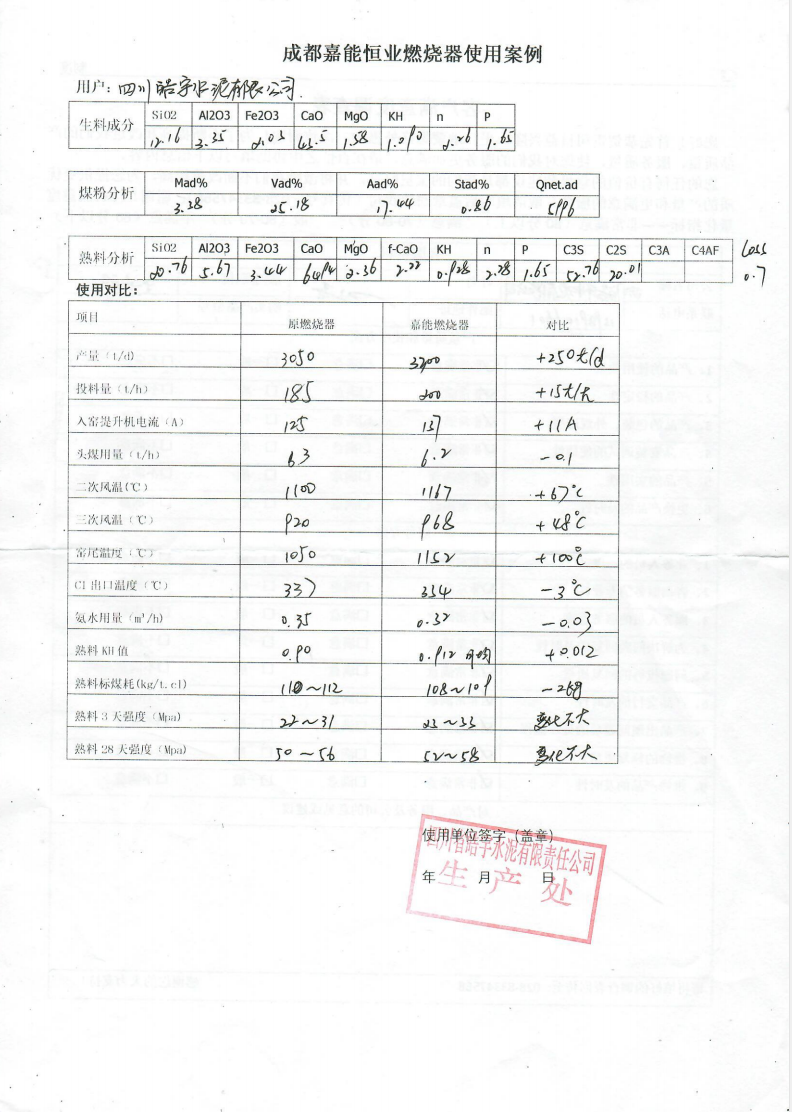 成都嘉能恒业燃烧器使用案例
用户：四川皓宇水泥有限公司.
生料成分 SiO2 Al2O3 Fe2O3 CaO MgO KH n P
12.16 3.35 2.03 43.5 1.58 1.090 2.26 1.65
煤粉分析 Mad% Vad% Aad% Stad% Qnet.ad
3.28 25.18 17.44 0.86 5996
熟料分析 SiO2 Al2O3 Fe2O3 CaO MgO f-CaO KH n P C3S C2S C3A C4AF Loss
20.76 5.67 3.44 64.94 2.36 2.22 0.928 2.28 1.65 52.76 20.01 0.7
使用对比：
项目 原燃烧器 嘉能燃烧器 对比
产量（t/d） 3050 3300 +250t/d
投料量（t/h） 185 200 +15t/h
入窑提升机电流（A） 125 137 +11A
头煤用量（t/h） 6.3 6.2 -0.1
二次风温(℃) 1100 1167 +67℃
三次风温（℃） 920 968 +48℃
窑尾温度（℃） 1050 1152 +100℃
C1 出口温度（℃） 337 334 -3℃
氨水用量（m³/h) 0.35 0.32 -0.03
熟料 KH 值 0.90 0.912 平均 +0.012
熟料标煤耗(kg/t.cl) 110~112 108~109 -2kg
熟料 3 天强度（Mpa) 22~31 23~33 变化不大
熟料 28 天强度（Mpa) 50~56 52~58 变化不大
使用单位签字（盖章）
四川省皓宇水泥有限责任公司
年 月 日
生产处